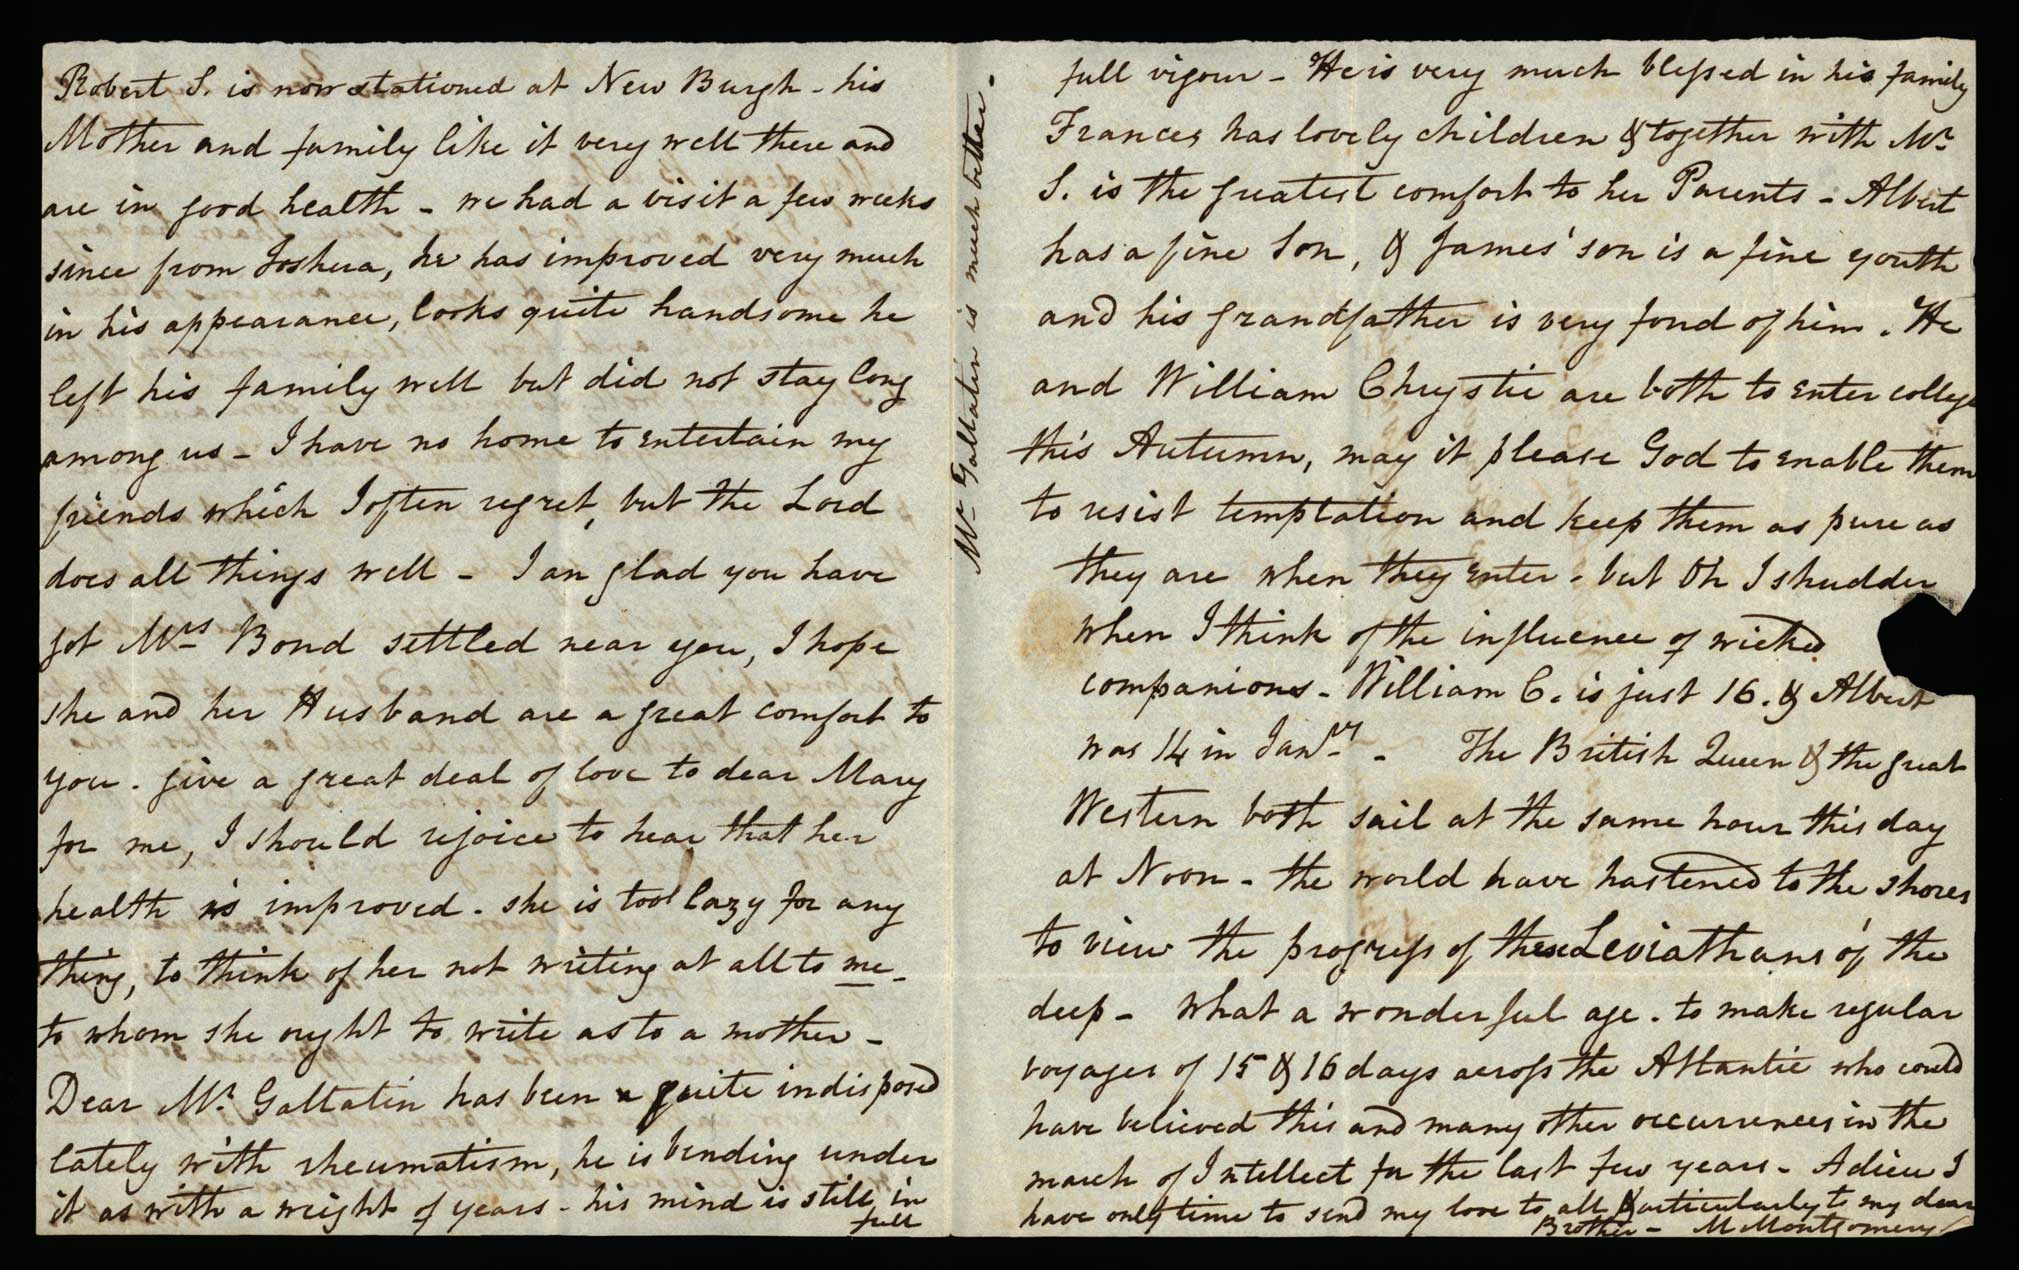 Robert S. is now stationed at New Burgh - his
Mother and family like it very well there and
are in good health - we had a visit a few weeks
since from Joshua, he has improved very much
in his appearance, looks quite handsome he
left his family well but did not stay long
among us - I have no home to entertain my
friends which I often regret, but the Lord
does all things well - I an glad you have
got Mrs Bond settled near you, I hope
she and her Husband are a great comfort to
you. give a great deal of love to dear Mary
for me, I should rejoice to hear that her
health is improved. she is too lazy for any
thing, to think of her not writing at all to me -
to whom she ought to write as to a mother -
Dear Mr. Gallatin has been quite indisposed
lately with rheumatism, he is bending under
it as with a weight of years - his mind is still in
full
Mr Gallatin is much better.
full vigour - He is very much blessed in his family
Frances has lovely children & together with Mr
S. is the greatest comfort to her Parents - Albert
has a fine Son, & James' son is a fine youth
and his grandfather is very fond of him. He
and William Chrystie are both to enter college
this Autumn, may it please God to enable them
to resist temptation and keep them as pure as
they are when they enter - but Oh I shudder
when I think of the influence of wicked
companions - William C. is just 16. & Albert
was 14 in Jany - The British Queen & the great
Western both sail at the same hour this day
at Noon - the world have hastened to the shores
to view the progress of these Leviathans of the
deep - What a wonderful age. to make regular
voyages of 15 & 16 days across the Atlantic who could
have believed this and many other occurrences in the
march of Intellect for the last few years - Adieu I
have only time to send my love to all particularly to my dear
Brother - M Montgomery